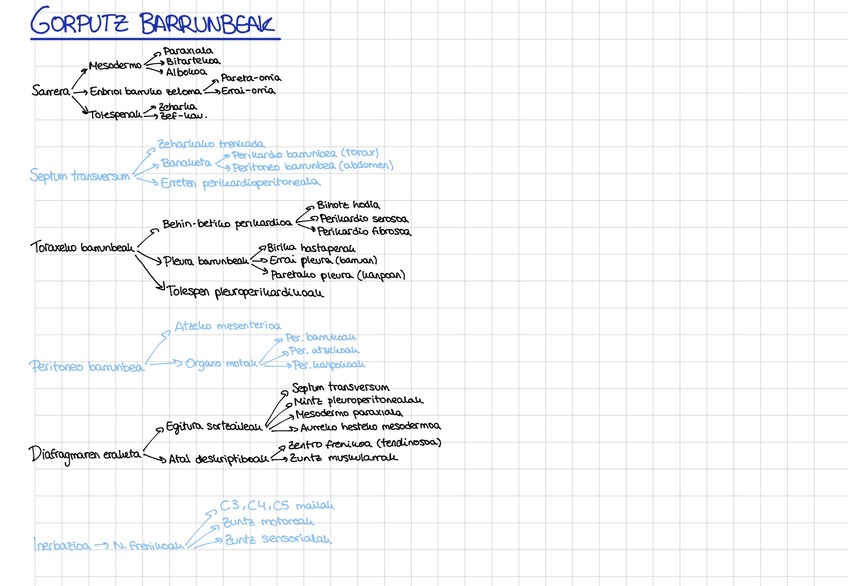 GORPUTZ BARRUNBEAK
Sarrera
Mesodermo
Paraxiala
Bitartekoa
Albokoa
Enbrioi barruko zeloma
Pareta-orria
Errai-orria
Tolespenak
Zeharka
Zef-kau.
Septum transversum
Zeharkako trenkada
Banaketa
Perikardio barrunbea (torax)
Peritoneo barrunbea (abdomen)
Erreten perikardioperitoneala
Toraxeko barrunbeak
Behin-betiko perikardioa
Bihotz hodia
Perikardio serosoa
Perikardio fibrosoa
Pleura barrunbeak
Birika hastapenak
Errai pleura (barruan)
Paretako pleura (kanpoan)
Tolespen pleuroperikardikoak
Peritoneo barrunbea
Atzeko mesenterioa
Organo motak
Per. barrukoak
Per. atzekoak
Per. kanpokoak
Diafragmaren eraketa
Egitura sortzaileak
Septum transversum
Mintz pleuroperitonealak
Mesodermo paraxiala
Aurreko hesteko mesodermoa
Atal deskriptiboak
Zentro frenikoa (tendinosoa)
Zuntz muskularrak
Inerbazioa → N. frenikoak
C3, C4, C5 mailak
Zuntz motoreak
Zuntz sensorialak